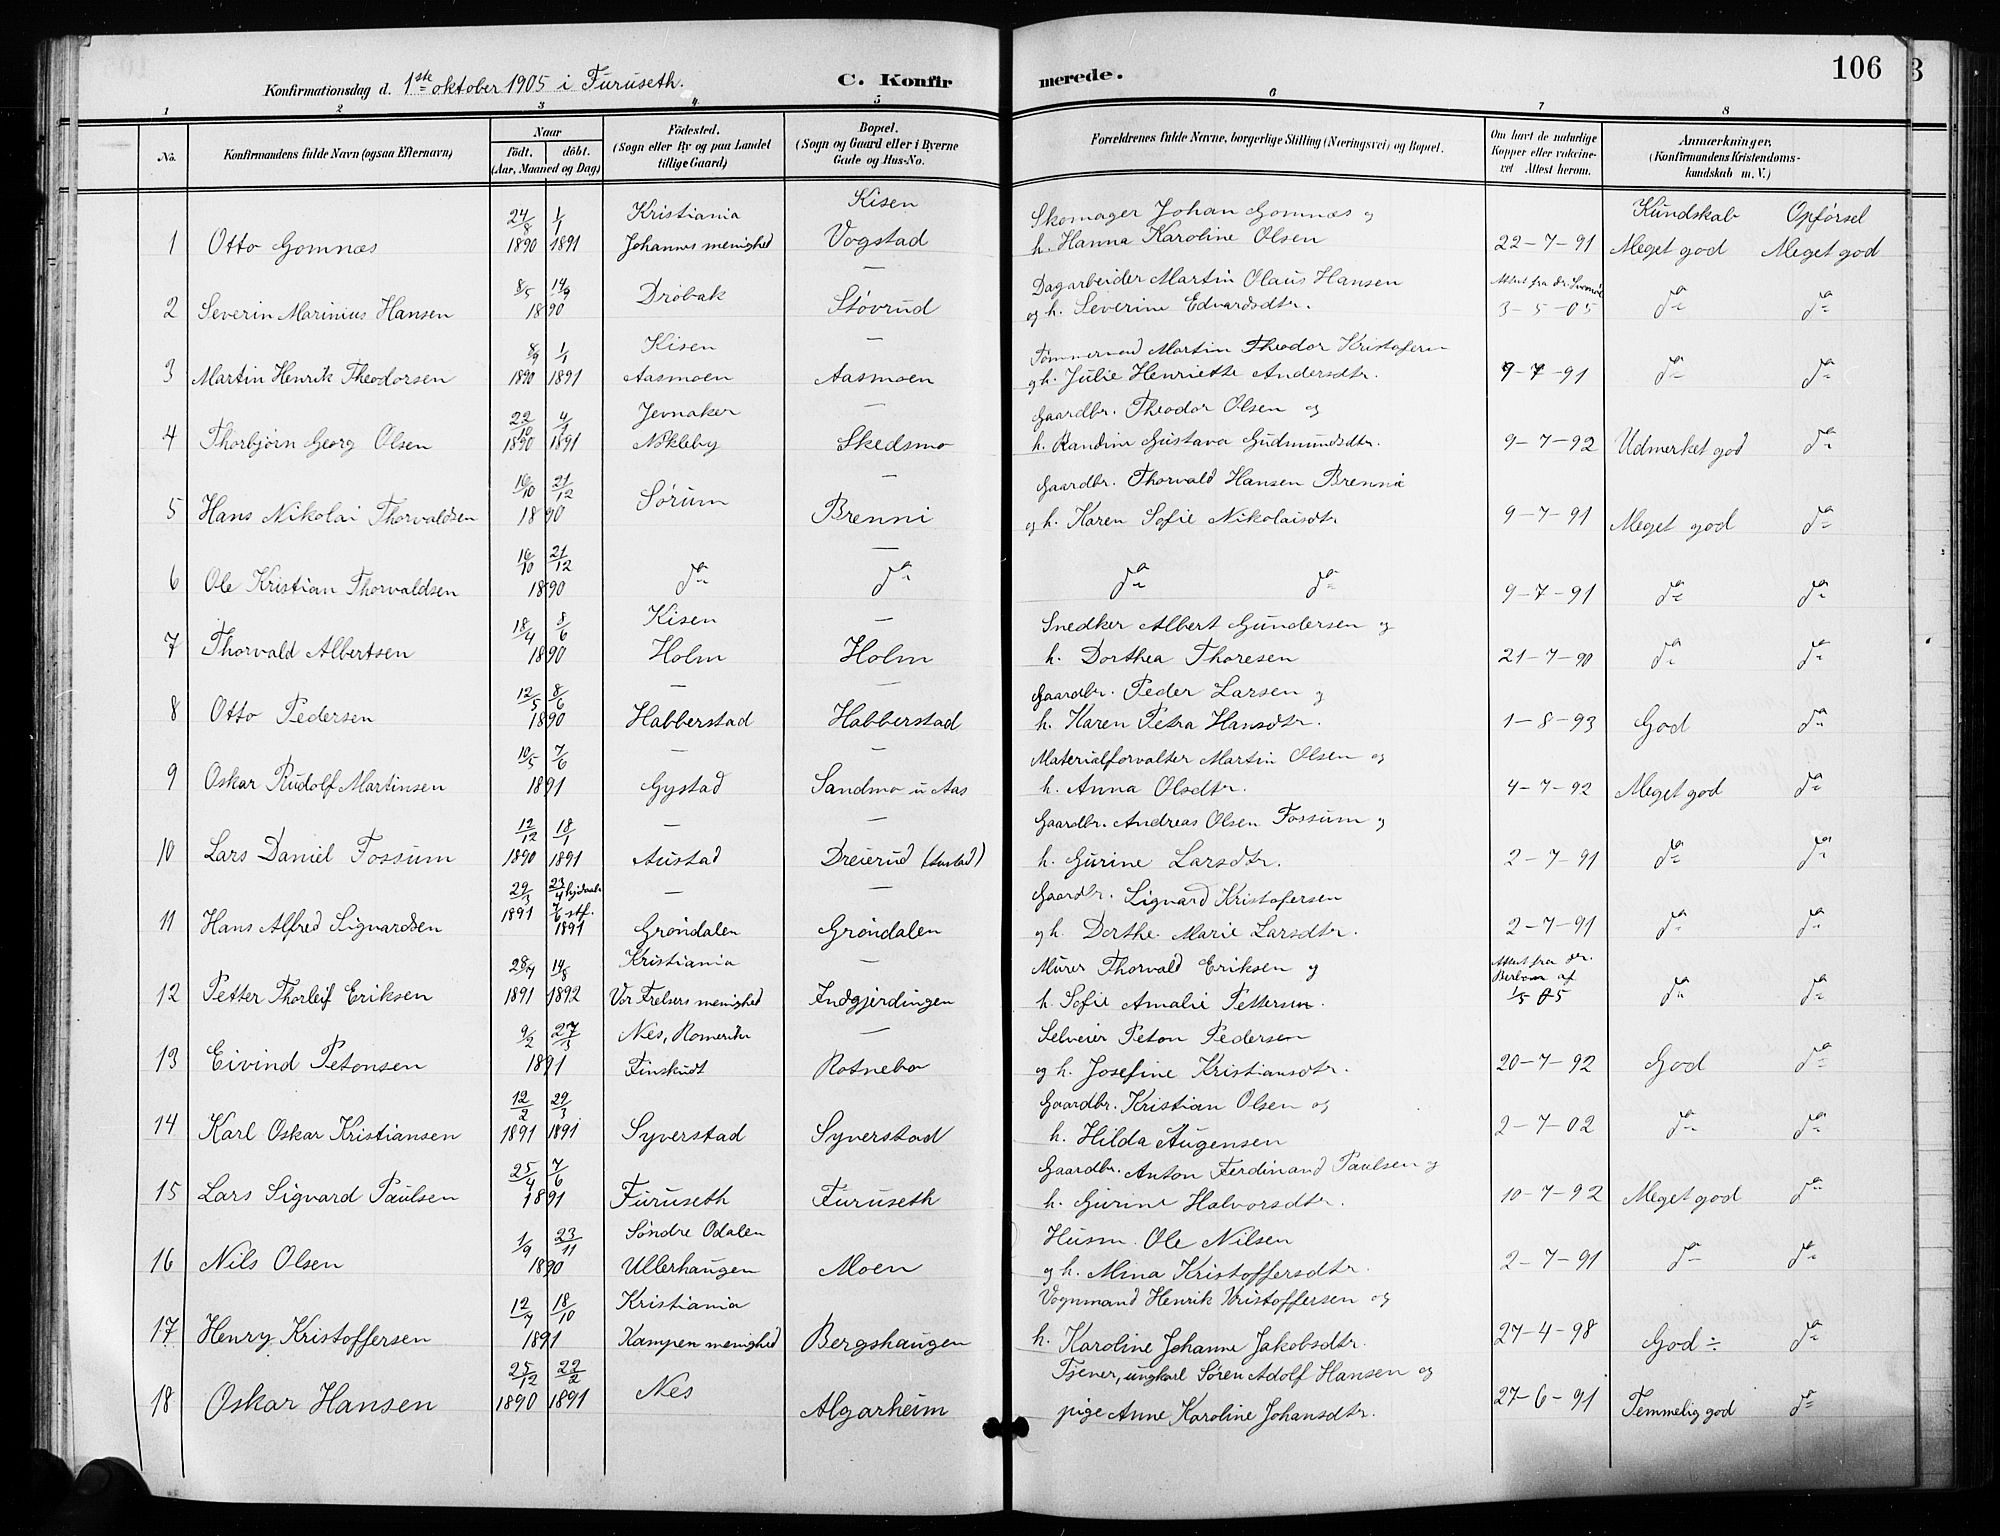 Konfirmationsdag d. 1ste oktober 1905 i Furuseth. C. Konfir merede. 106
1 2 3 4 5 6 7 8
No. Konfirmandens fulde Navn (ogsaa Efternavn) Naar Födt. döbt. (Aar, Maaned og Dag) Födested. (Sogn eller By og paa Landet tillige Gaard) Bopæl. (Sogn og Gaard eller i Byerne Gade og Hus-No. Forældrenes fulde Navne, borgerlige Stilling (Næringsvei) og Bopæl. Om havt de naturlige Kopper eller vakcineret Attest herom. Anmærkninger, (Konfirmandens Kristendomskundskab m. V.)
24/8 1/1 Kristiania Kisen Skomager Johan Gomnæs og Kundskab Opførsel
1 Otto Gomnæs 1890 1891 Johannes menighed Vogstad h. Hanna Karoline Olsen 22-7-91 Meget god Meget god
8/5 14/9 Drøbak — Dagarbeider Martin Olaus Hansen Attest fra dr.
2 Severin Marinius Hansen 1890 Støvrud og h. Severine Edvardsdtr. 3-5-05 do do
8/9 1/1 Kisen — Tømmermand Martin Theodor Kristofersen
3 Martin Henrik Theodorsen 1890 1891 Aasmoen Aasmoen og h. Julie Henriette Andersdtr. 9-7-91 do do
22/10 4/1 Jevnaker — Gaardbr. Theodor Olsen og
4 Thorbjørn Georg Olsen 1890 1891 Nøkleby Skedsmo h. Randine Gustava Gudmundsdtr. 9-7-92 Udmerket god do
16/10 21/12 Sørum — Gaardbr. Thorvald Hansen Brenni
5 Hans Nikolai Thorvaldsen 1890 Brenni og h. Karen Sofie Nikolaisdtr 9-7-91 Meget god do
16/10 21/12 —
6 Ole Kristian Thorvaldsen 1890 do do do do 9-7-91 do do
18/4 8/6 Kisen — Snedker Albert Gundersen og
7 Thorvald Albertsen 1890 Holm Holm h. Dorthea Thoresen 21-7-90 do do
12/5 8/6 — — Gaardbr. Peder Larsen og
8 Otto Pedersen 1890 Habberstad Habberstad h. Karen Petra Hansdtr. 1-8-93 God do
10/5 7/6 — — Materialforvalter Martin Olsen og
9 Oskar Rudolf Martinsen 1891 Gystad Sandmo u Aas h. Anna Olsdtr. 4-7-92 Meget god do
12/12 18/1 — — Gaardbr. Andreas Olsen Fossum og
10 Lars Daniel Fossum 1890 1891 Austad Dreierud (Austad) h. Gurine Larsdtr. 2-7-91 do do
29/3 23/4 hjdøbt — — Gaardbr. Sigvard Kristofersen
11 Hans Alfred Sigvardsen 1891 7/6 stf. 1891 Grøndalen Grøndalen og h. Dorthe Marie Larsdtr. 2-7-91 do do
28/7 14/8 Kristiania — Murer Thorvald Eriksen og Attest fra dr.
12 Petter Thorleif Eriksen 1891 1892 Vor Frelsers menighed Indgjerdingen h. Sofie Amalie Pettersen. af 1/5 05 do do
9/2 27/3 Nes, Romerike — Selveier Peton Pedersen
13 Eivind Petonsen 1891 Finskudt Rotnebo og h. Josefine Kristiansdtr. 20-7-92 God do
12/2 29/3 Gaardbr. Kristian Olsen og
14 Karl Oskar Kristiansen 1891 1891 Syverstad Syverstad h. Hilda Augensen 2-7-02 do do
25/4 7/6 Gaardbr. Anton Ferdinand Paulsen og
15 Lars Sigvard Paulsen 1891 Furuseth Furuseth h. Gurine Halvorsdtr. 10-7-92 Meget god do
1/9 23/11 Søndre Odalen Husm. Ole Nilsen
16 Nils Olsen 1890 Ullerhaugen Moen og h. Mina Kristoffersdtr. 2-7-91 do do
12/7 18/10 Kristiania Vognmand Henrik Kristoffersen og
17 Henry Kristoffersen 1891 Kampen menighed Bergshaugen h. Karoline Johanne Jakobsdtr. 27-4-98 God ÷ do
25/12 22/2 Nes Tjener, ungkarl Søren Adolf Hansen og
18 Oskar Hansen 1890 1891 Algarheim pige Anne Karoline Johansdtr. 27-6-91 Temmelig god do